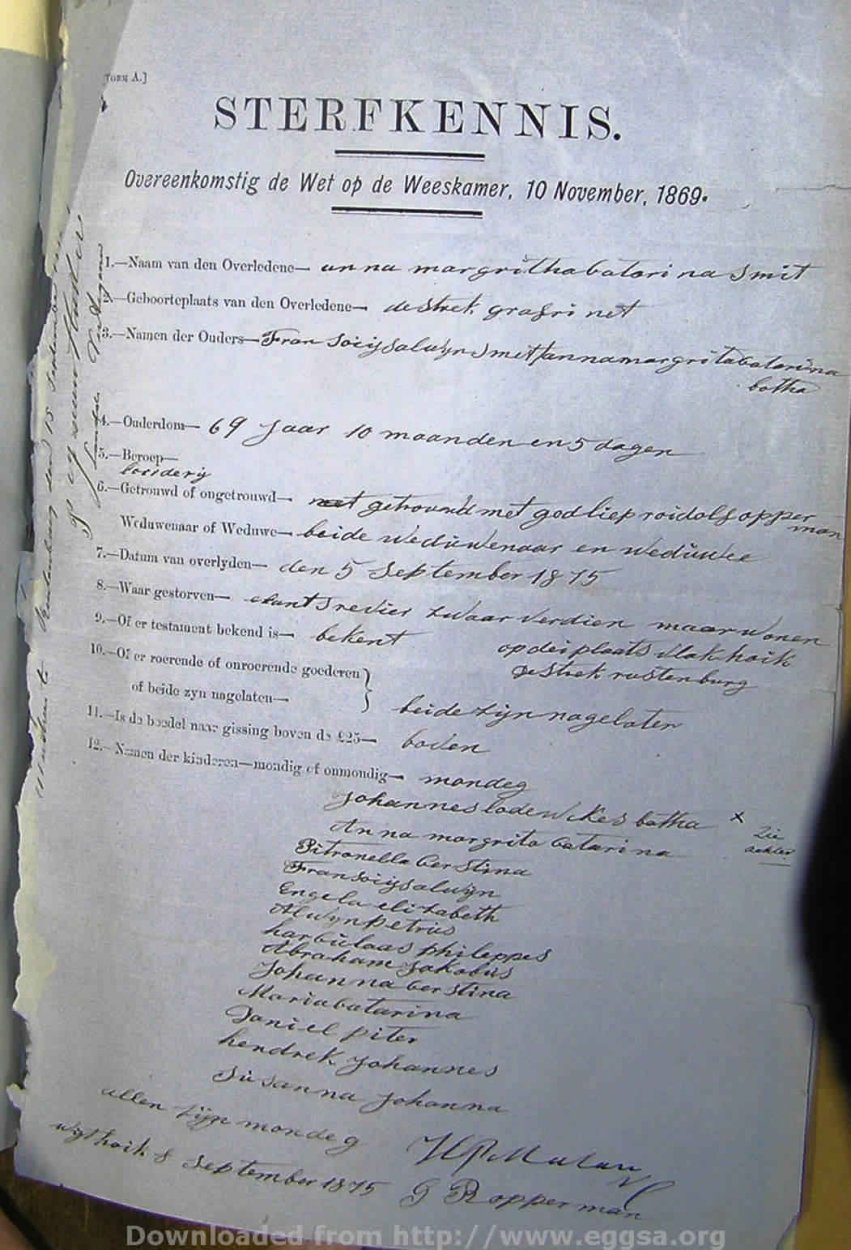 STERFKENNIS.
Overeenkomstig de Wet op de Weeskamer, 10 November, 1869.
1.—Naam van den Overledene— anna margritha catarina Smit
2.—Geboorteplaats van den Overledene— destrek grafri net
3.—Namen der Ouders— Fransoiysalwyn Smit anna margrita catarina
botha
4.—Ouderdom— 69 Jaar 10 maanden en 5 dagen
5.—Beroep—
boerdery
6.—Getrouwd of ongetrouwd— getrouwd met godliep roidolf opper
man
Weduwenaar of Weduwe— beide weduwenaar en weduwee
7.—Datum van overlyden— den 5 September 1875
8.—Waar gestorven— revier maar wonen
op dei plaats vlakhoik
destrek rustenburg
9.—Of er testament bekend is— bekent
10.—Of er roerende of onroerende goederen
of beide zyn nagelaten— beide zijn nagelaten
11.—Is de boedel naar gissing boven de £25— boven
12.—Namen der kinderen—mondig of onmondig— mondeg
Johannes lodewikes botha x Zie
achter
Anna margrita catarina
Pitronella cerstina
Fransoiysalwyn
Engela elizabeth
Alwyn petrus
harculaas phileppes
Abraham Jakobus
Johanna cerstina
Maria catarina
Daniel piter
hendrek Johannes
Susanna Johanna
allen zijn mondeg
8 September 1875
G R opperman
Downloaded from http://www.eggsa.org